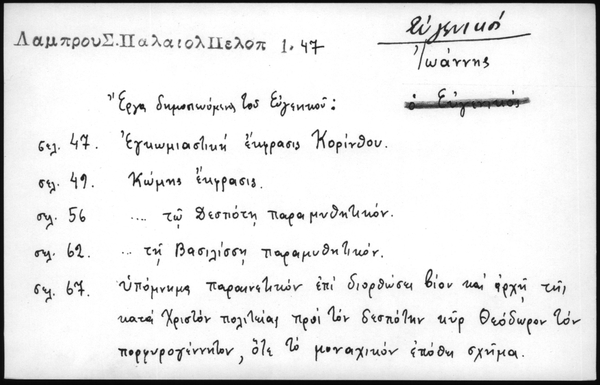 Εὐγενικός
Λαμπρου Σ. Παλαιολ Πελοπ 1. 47
Ἰωάννης
ὁ Εὐγενικός
Ἔργα δημοσιευόμενα τοῦ Εὐγενικοῦ:
σελ. 47. Ἐγκωμιαστική ἔκφρασις Κορίνθου.
σελ. 49. Κώμης ἔκφρασις.
σελ. 56 .... τῷ Δεσπότῃ παραμυθητικόν.
σελ. 62. ... τῇ Βασιλίσσῃ παραμυθητικόν.
σελ. 67. ὑπόμνημα παραινετικόν ἐπί διορθώσει βίου καί ἀρχῇ τῆς
κατά Χριστόν πολιτείας πρός τόν δεσπότην κῦρ Θεόδωρον τόν
πορφυρογέννητον, ὅτε τό μοναχικόν ἐπόθει σχῆμα.